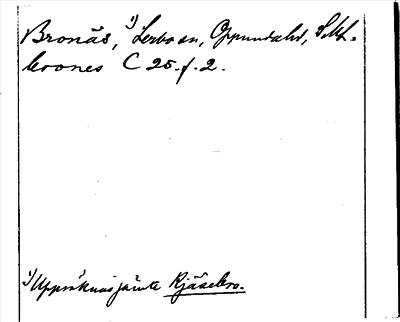 Bronäs, 1) Lerbo sn, Oppundahd, Sdhl.
krones C 25. f. 2.
1) Uppräknas jämte Kjäsebro.